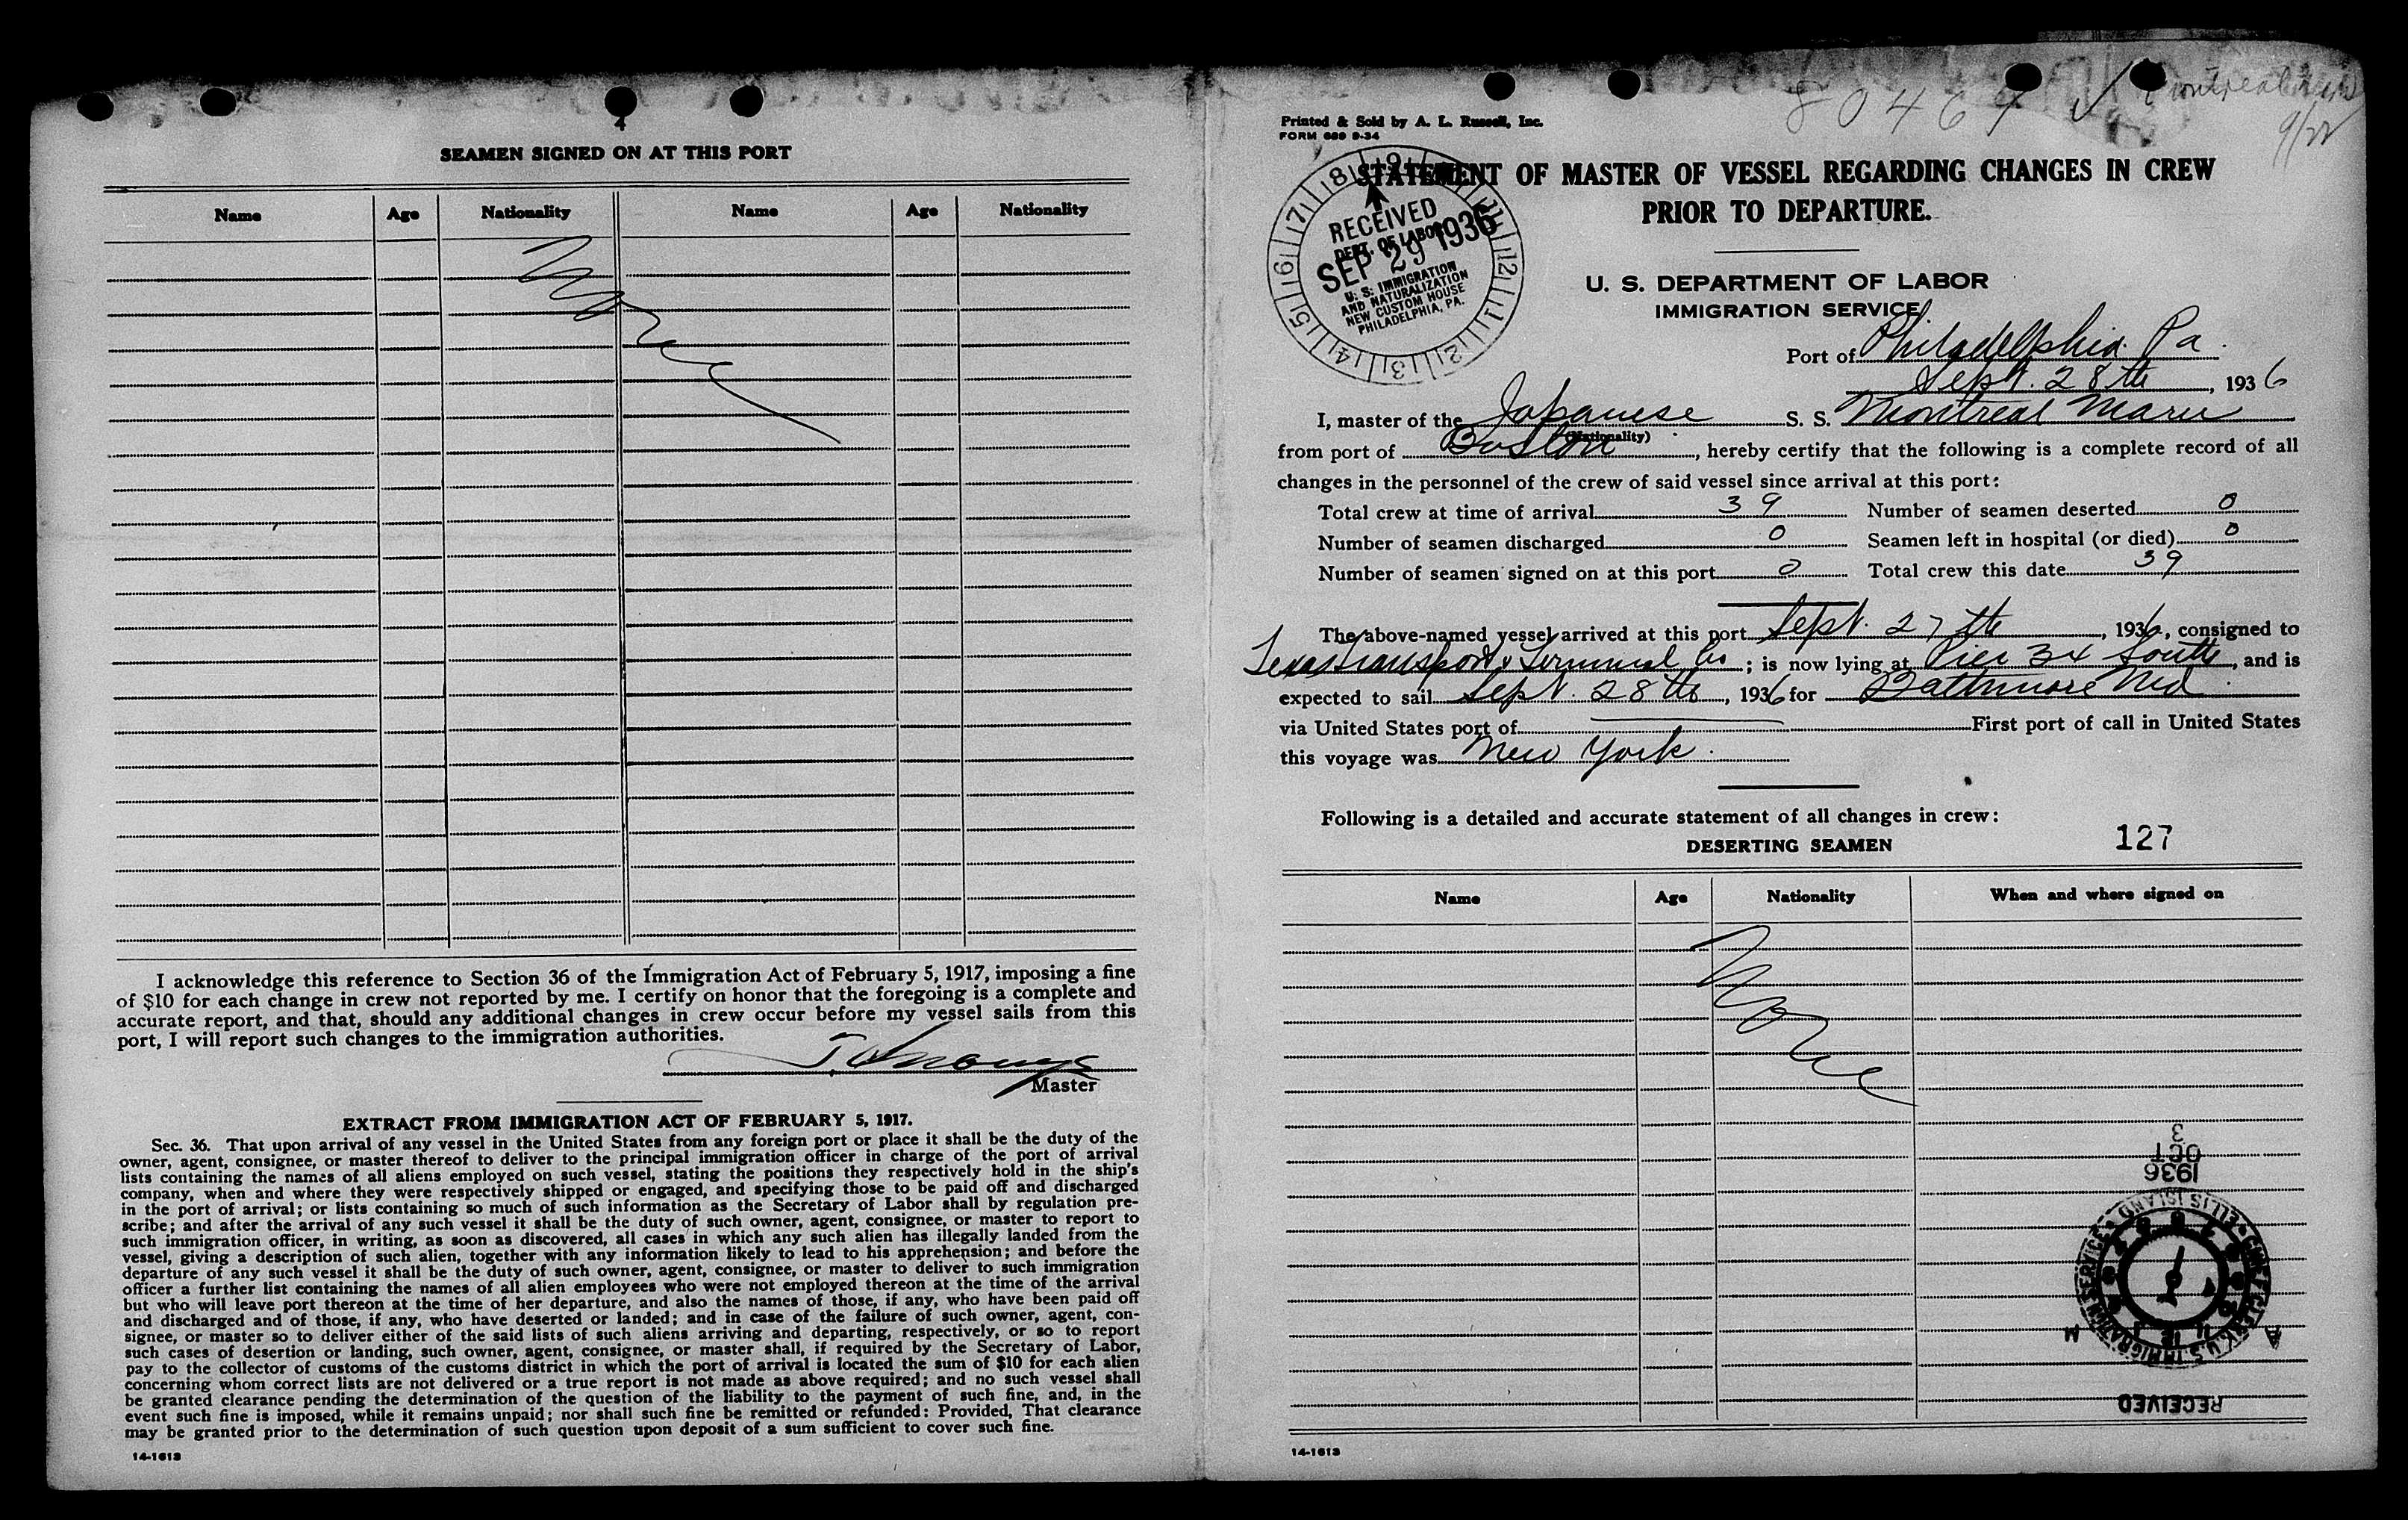 4
SEAMEN SIGNED ON AT THIS PORT
Name Age Nationality Name Age Nationality
None
I acknowledge this reference to Section 36 of the Immigration Act of February 5, 1917, imposing a fine
of $10 for each change in crew not reported by me. I certify on honor that the foregoing is a complete and
accurate report, and that, should any additional changes in crew occur before my vessel sails from this
port, I will report such changes to the immigration authorities.
Master
EXTRACT FROM IMMIGRATION ACT OF FEBRUARY 5, 1917.
Sec. 36. That upon arrival of any vessel in the United States from any foreign port or place it shall be the duty of the
owner, agent, consignee, or master thereof to deliver to the principal immigration officer in charge of the port of arrival
lists containing the names of all aliens employed on such vessel, stating the positions they respectively hold in the ship's
company, when and where they were respectively shipped or engaged, and specifying those to be paid off and discharged
in the port of arrival; or lists containing so much of such information as the Secretary of Labor shall by regulation pre-
scribe; and after the arrival of any such vessel it shall be the duty of such owner, agent, consignee, or master to report to
such immigration officer, in writing, as soon as discovered, all cases in which any such alien has illegally landed from the
vessel, giving a description of such alien, together with any information likely to lead to his apprehension; and before the
departure of any such vessel it shall be the duty of such owner, agent, consignee, or master to deliver to such immigration
officer a further list containing the names of all alien employees who were not employed thereon at the time of the arrival
but who will leave port thereon at the time of her departure, and also the names of those, if any, who have been paid off
and discharged and of those, if any, who have deserted or landed; and in case of the failure of such owner, agent, con-
signee, or master so to deliver either of the said lists of such aliens arriving and departing, respectively, or so to report
such cases of desertion or landing, such owner, agent, consignee, or master shall, if required by the Secretary of Labor,
pay to the collector of customs of the customs district in which the port of arrival is located the sum of $10 for each alien
concerning whom correct lists are not delivered or a true report is not made as above required; and no such vessel shall
be granted clearance pending the determination of the question of the liability to the payment of such fine, and, in the
event such fine is imposed, while it remains unpaid; nor shall such fine be remitted or refunded: Provided, That clearance
may be granted prior to the determination of such question upon deposit of a sum sufficient to cover such fine.
14-1613
Montreal
9/28
Printed & Sold by A. L. Russell, Inc.
FORM 689 9-34
STATEMENT OF MASTER OF VESSEL REGARDING CHANGES IN CREW
PRIOR TO DEPARTURE.
RECEIVED
DEPT. OF LABOR
SEP 29 1936
U. S. IMMIGRATION
AND NATURALIZATION
NEW CUSTOM HOUSE
PHILADELPHIA, PA.
U. S. DEPARTMENT OF LABOR
IMMIGRATION SERVICE
Port of Philadelphia. Pa.
Sept. 28th, 1936
I, master of the Japanese S. S. Montreal Maru
(Nationality)
from port of Boston, hereby certify that the following is a complete record of all
changes in the personnel of the crew of said vessel since arrival at this port:
Total crew at time of arrival 39 Number of seamen deserted 0
Number of seamen discharged 0 Seamen left in hospital (or died) 0
Number of seamen signed on at this port 0 Total crew this date 39
The above-named vessel arrived at this port Sept. 27th, 1936, consigned to
Texas Transport & Terminal Co; is now lying at Pier 34 South, and is
expected to sail Sept. 28th, 1936 for Baltimore Md.
via United States port of First port of call in United States
this voyage was New York.
Following is a detailed and accurate statement of all changes in crew:
DESERTING SEAMEN 127
Name Age Nationality When and where signed on
None
1936
OCT
3
ELLIS ISLAND
CHIEF CLERK U.S. IMMIGRATION SERVICE
A M
RECEIVED
14-1613